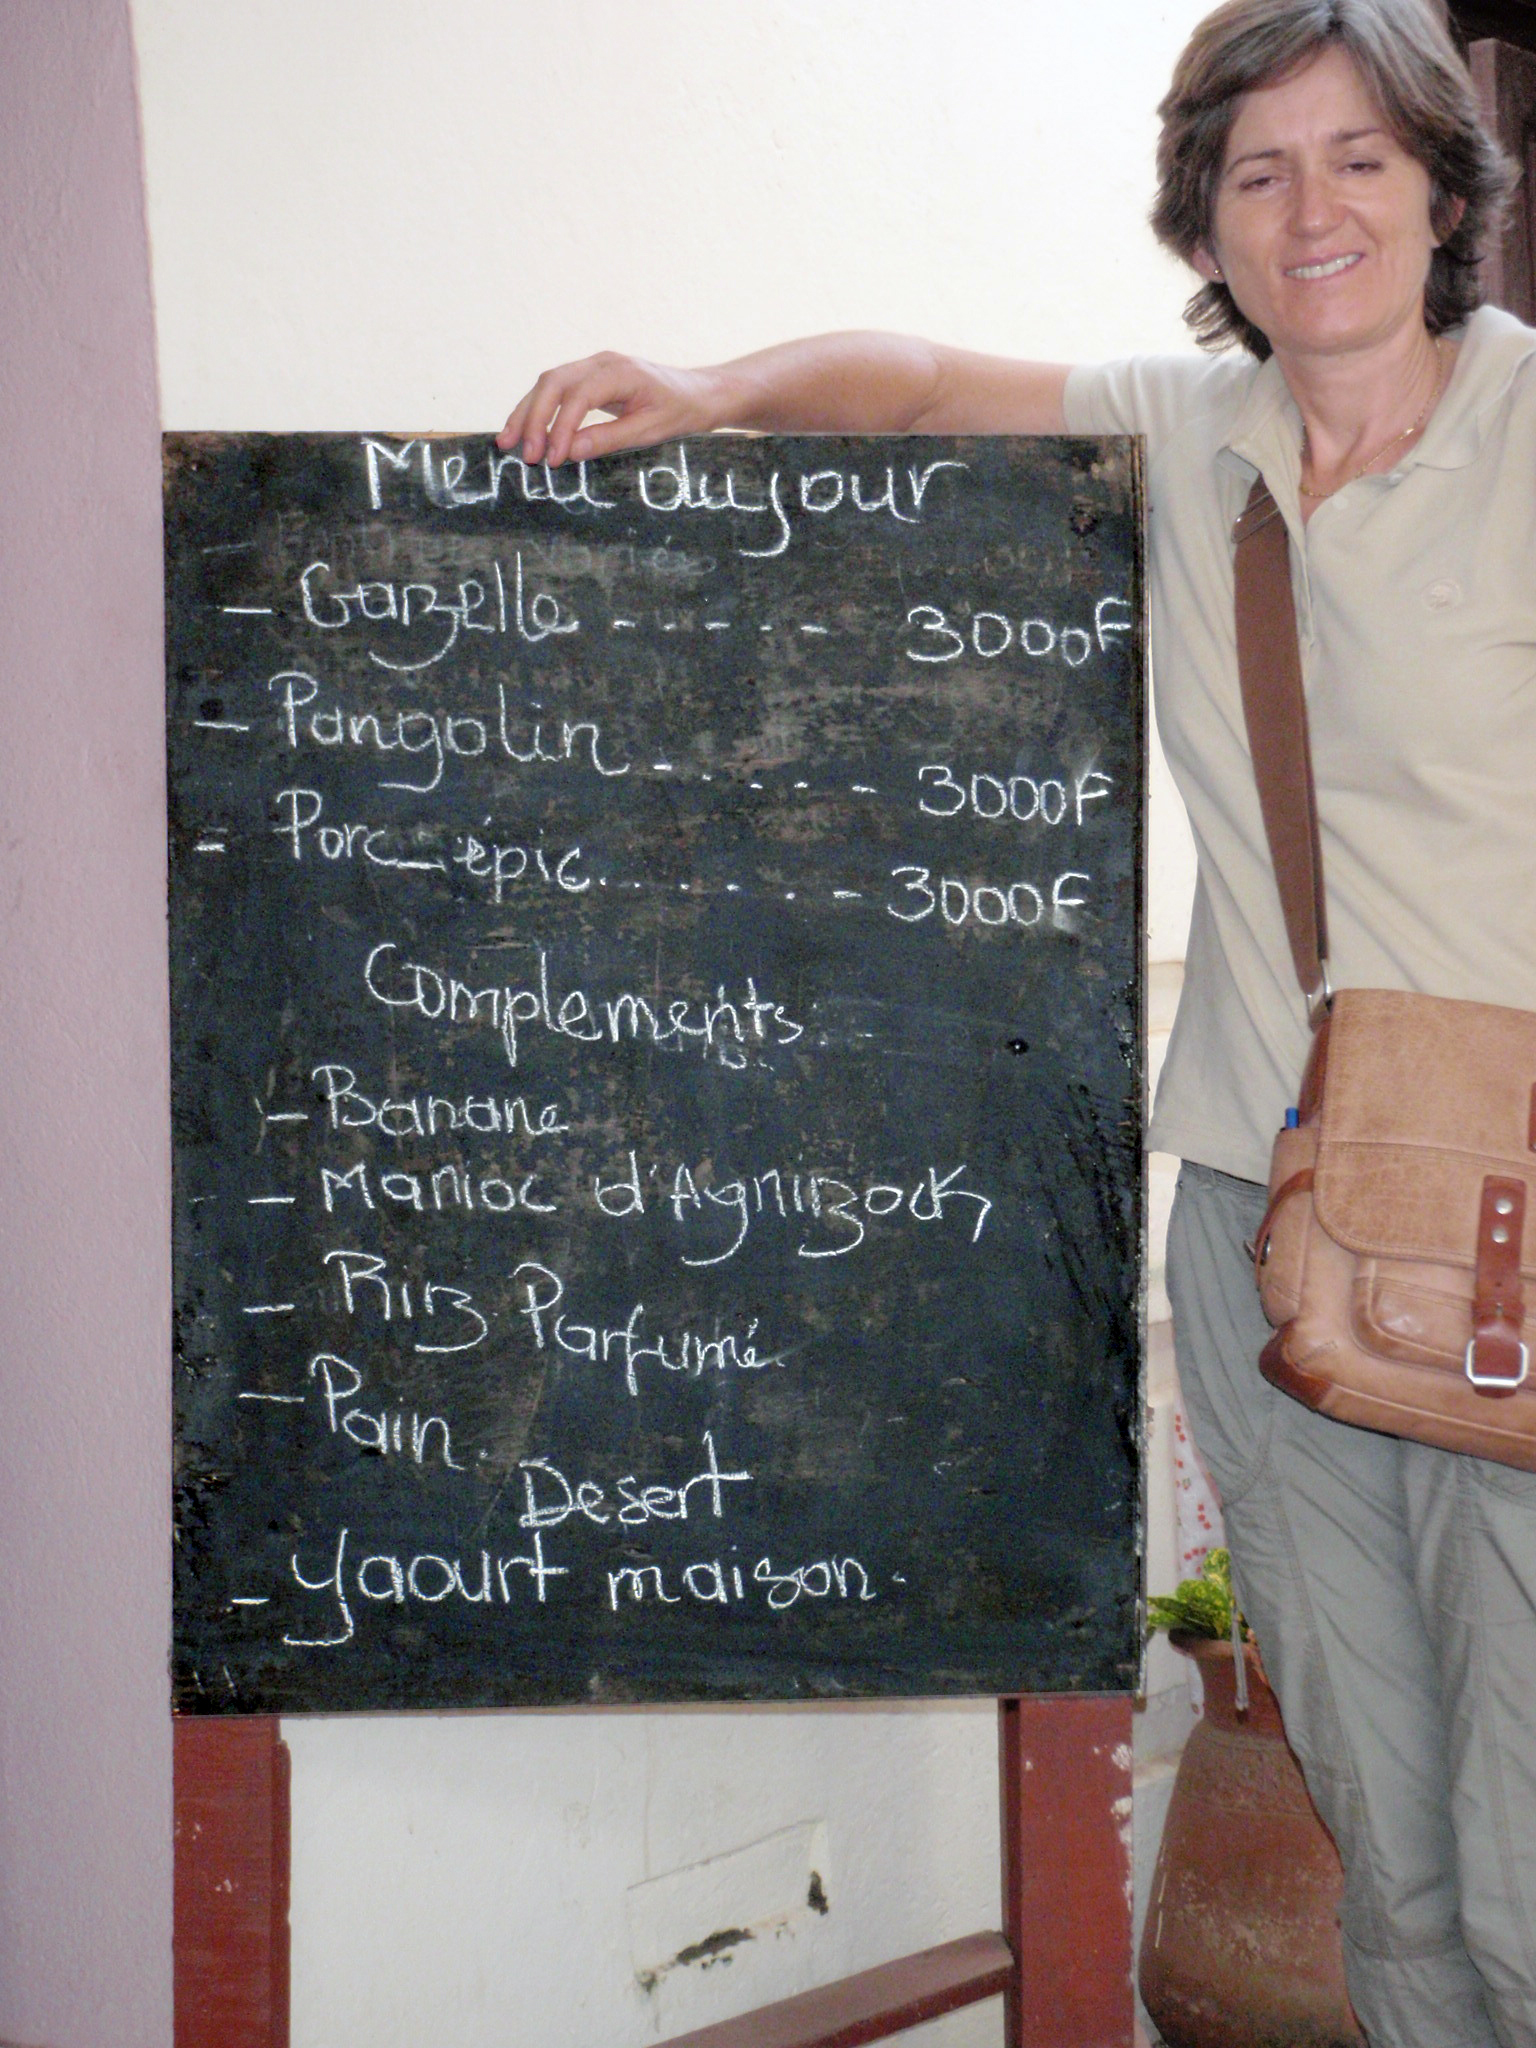 Menu du jour
- Gazelle ----- 3000F
- Pangolin ...--- 3000F
= Porc-épic.......- 3000F
Complements:
- Banane
- Manioc d'Agnizock
- Riz Parfumé
- Pain.
Desert
- Yaourt maison.